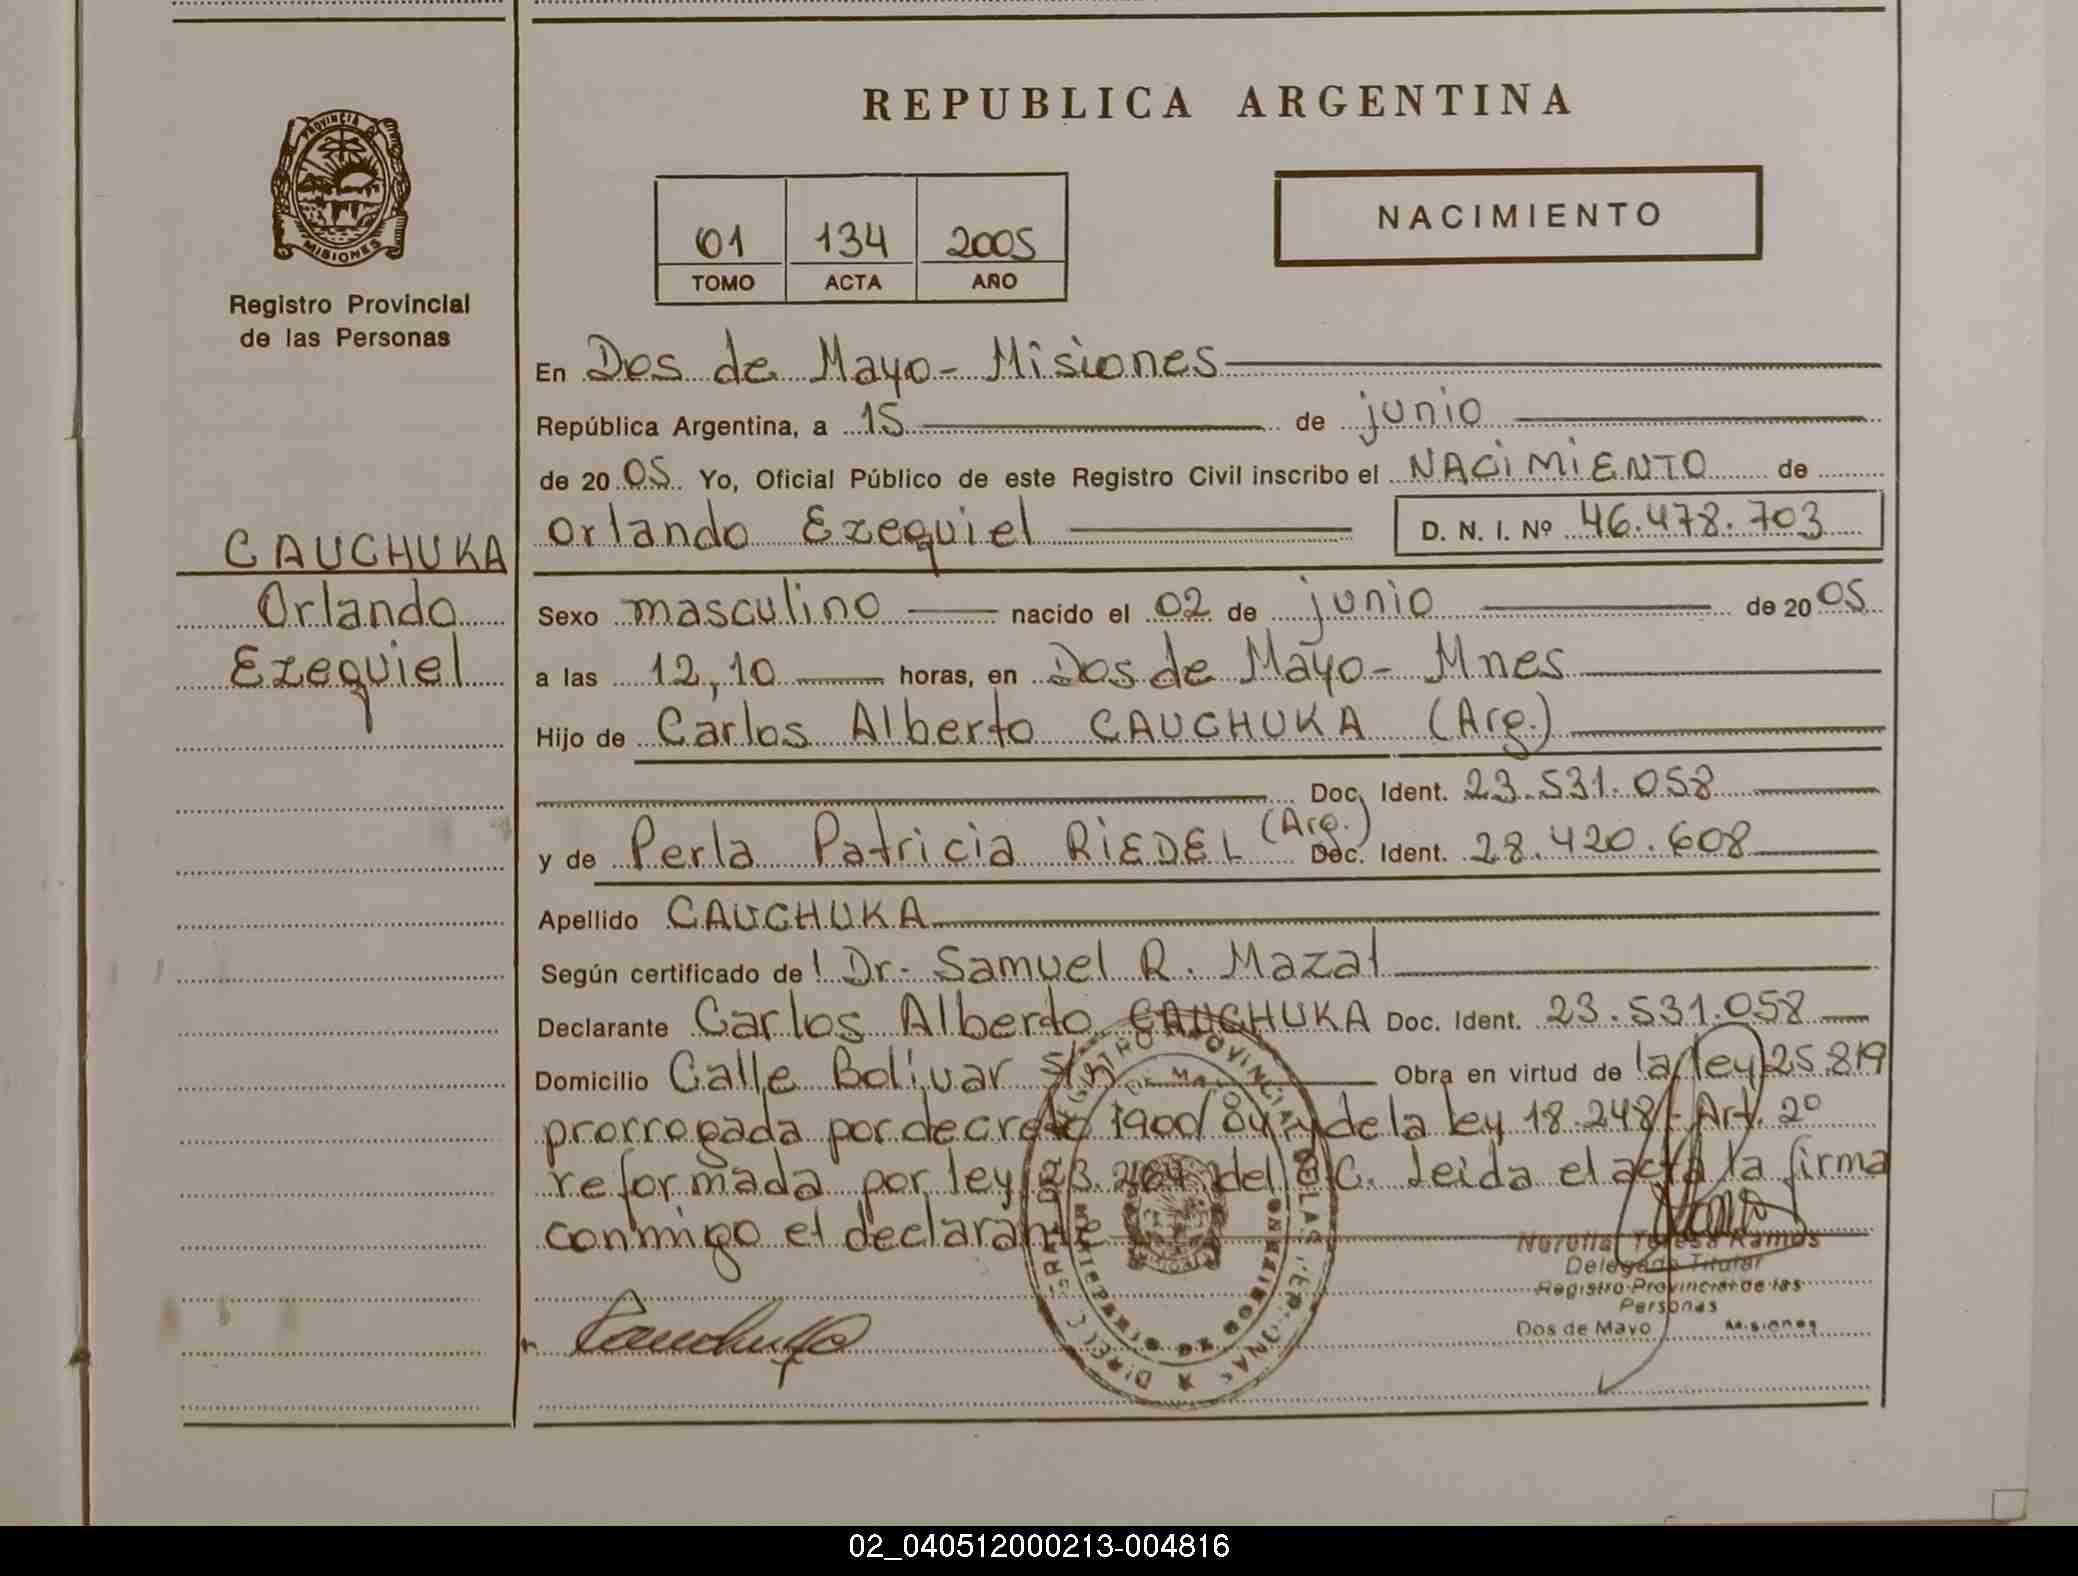 REPUBLICA ARGENTINA
PROVINCIA D
MISIONES
Registro Provincial
de las Personas
01 134 2005
TOMO ACTA AÑO
NACIMIENTO
En Dos de Mayo - Misiones
República Argentina, a 15 de junio
de 20 05 Yo, Oficial Público de este Registro Civil inscribo el NACIMIENTO de
CAUCHUKA
Orlando
Ezequiel
Orlando Ezequiel D. N. I. Nº 46.478.703
Sexo masculino nacido el 02 de junio de 20 05
a las 12,10 horas, en Dos de Mayo - Mnes
Hijo de Carlos Alberto CAUCHUKA (Arg.)
Doc. Ident. 23.531.058
y de Perla Patricia RIEDEL (Arg.) Doc. Ident. 28.420.608
Apellido CAUCHUKA
Según certificado de Dr. Samuel R. Mazal
Declarante Carlos Alberto CAUCHUKA Doc. Ident. 23.531.058
Domicilio Calle Bolivar s/n Obra en virtud de la ley 25.819
prorrogada por decreto 1900/04 y de la ley 18.248 - Art. 2º
reformada por ley 23.264 del C.C. Leida el acta la firma
conmigo el declarante
Teresa Ramos
Delegada Titular
Registro Provincial de las
Personas
Dos de Mayo Misiones
02_040512000213-004816